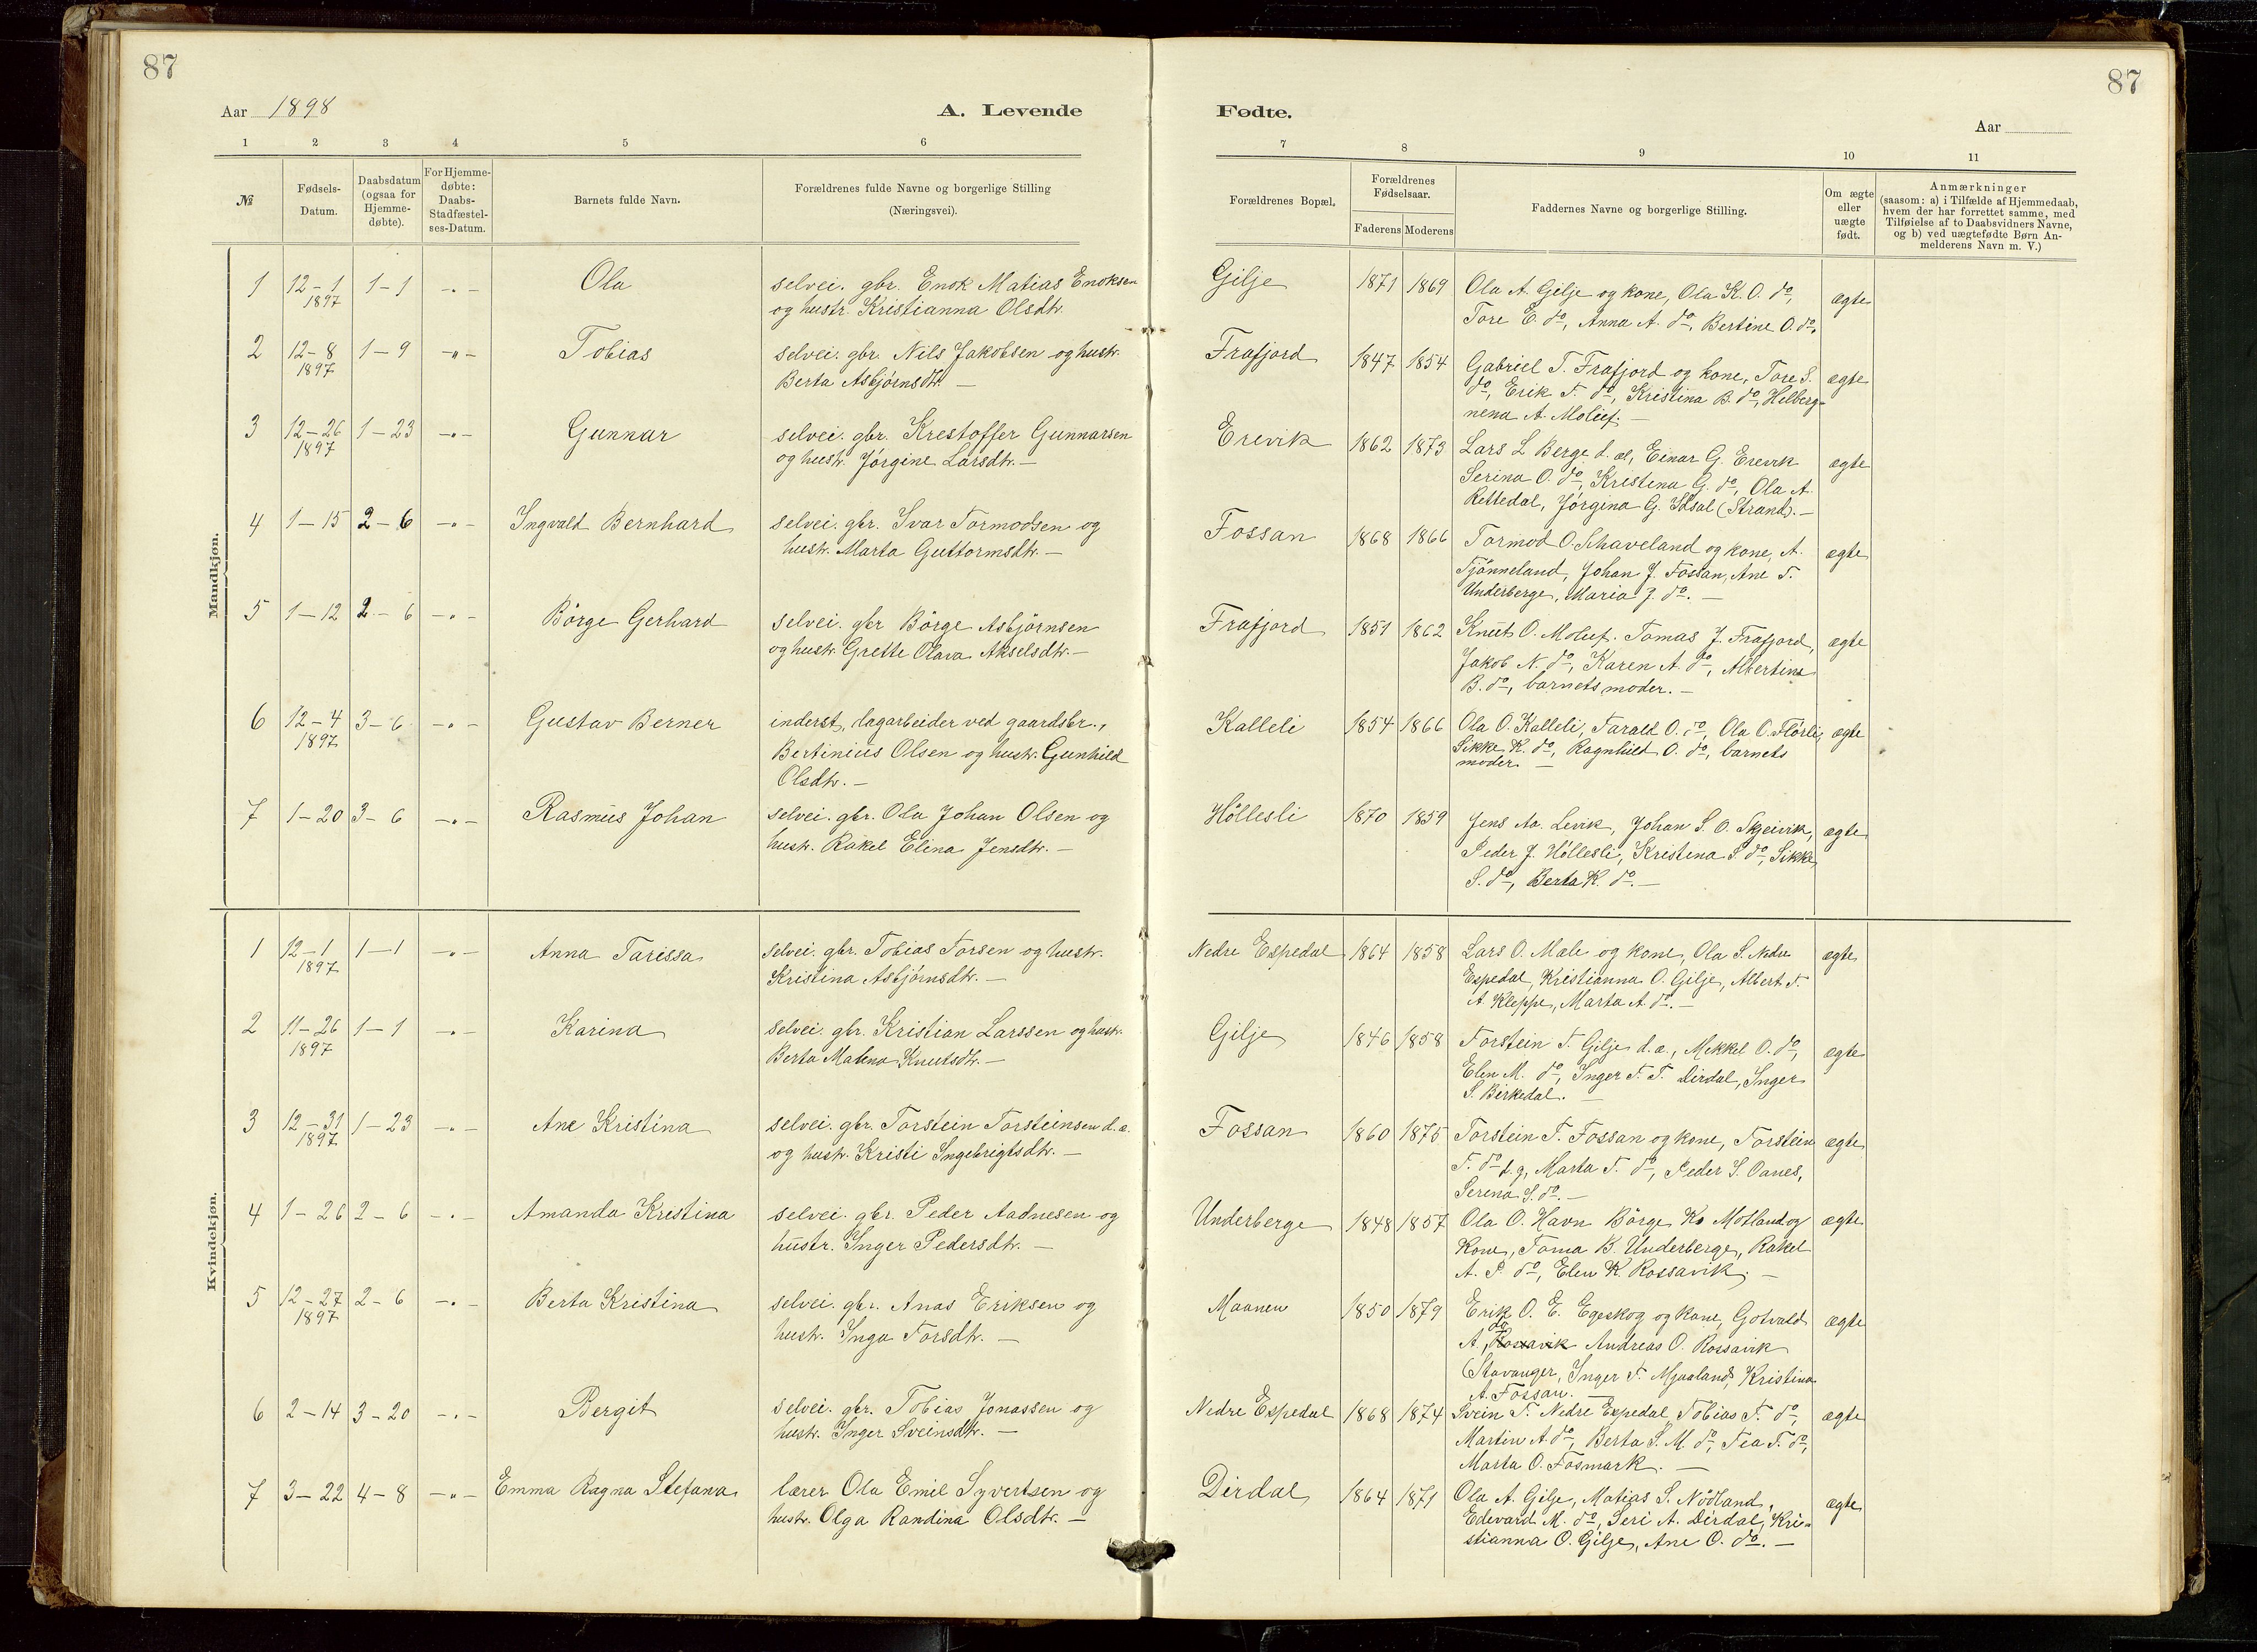 87
Aar 1898
A. Levende
1 2 3 4 5 6
№
Fødsels-Datum.
Daabsdatum (ogsaa for Hjemme-døbte).
For Hjemme-døbte: Daabs-Stadfæstel-ses-Datum.
Barnets fulde Navn.
Forældrenes fulde Navne og borgerlige Stilling
(Næringsvei).
Mandkjøn.
1 12-1 1-1 -„- Ola selvei. gbr. Enok Matias Enoksen
1897 og hustr. Kristianna Olsdtr.
2 12-8 1-9 -„- Tobias selvei. gbr. Nils Jakobsen og hustr.
1897 Berta Asbjörnsdtr. -
3 12-26 1-23 -„- Gunnar selvei. gbr. Krestoffer Gunnarsen
1897 og hustr. Jörgine Larsdtr. -
4 1-15 2-6 -„- Ingvald Bernhard selvei. gbr. Ivar Tormodsen og
hustr. Marta Guttormsdtr. -
5 1-12 2-6 -„- Börge Gerhard selvei. gbr Börge Asbjörnsen
og hustr. Grette Olava Akselsdtr. -
6 12-4 3-6 -„- Gustav Berner inderst, dagarbeider ved gaardsbr.,
1897 Bertinius Olsen og hustr. Gunhild
Olsdtr. -
7 1-20 3-6 -„- Rasmus Johan selvei. gbr. Ola Johan Olsen og
hustr. Rakel Elina Jensdtr. -
Kvindekjøn.
1 12-1 1-1 -„- Anna Tarissa selvei. gbr. Tobias Torsen og hustr.
1897 Kristina Asbjörnsdtr. -
2 11-26 1-1 -„- Karina selvei. gbr. Kristian Larssen og hustr.
1897 Berta Malena Knutsdtr. -
3 12-31 1-23 -„- Ane Kristina selvei. gbr. Torstein Torsteinsen d. æ.
1897 og hustr. Kristi Ingebrigtsdtr. -
4 1-26 2-6 -„- Amanda Kristina selvei. gbr. Peder Aadnesen og
hustr. Inger Pedersdtr. -
5 12-27 2-6 -„- Berta Kristina selvei. gbr. Anas Eriksen og
1897 hustr. Inga Torsdtr. -
6 2-14 3-20 -„- Bergit selvei. gbr. Tobias Jonassen og
hustr. Inger Sveinsdtr. -
7 3-22 4-8 -„- Emma Ragna Stefana lærer Ola Emil Syvertsen og
hustr. Olga Randina Olsdtr. -
87
Fødte.
Aar
7 8 9 10 11
Forældrenes Bopæl.
Forældrenes Fødselsaar.
Faderens Moderens
Faddernes Navne og borgerlige Stilling.
Om ægte eller uægte født.
Anmærkninger
(saasom: a) i Tilfælde af Hjemmedaab,
hvem der har forrettet samme, med
Tilføielse af to Daabsvidners Navne,
og b) ved uægtefødte Børn An-
melderens Navn m. V.)
Gilje 1871 1869 Ola A. Gilje og kone, Ola K. O. do, ægte
Tore E. do, Anna A. do, Bertine O. do.
Frafjord 1847 1854 Gabriel T. Frafjord og kone, Tore S. ægte
do, Erik T. do, Kristina B. do, Helberg-
nena A. Moluf. -
Erevik 1862 1873 Lars L Berge d. æl, Einar G. Erevik ægte
Serina O. do, Kristena G. do, Ola A.
Rettedal, Jörgina G. (Strand). -
Fossan 1868 1866 Tormod O. Schaveland og kone, A. ægte
Tjönneland, Johan J. Fossan, Ane T.
Underberge, Maria J. do. -
Frafjord 1851 1862 Knut O. Moluf. Tomas J. Frafjord, ægte
Jakob N. do, Karen A. do, Albertine
B. do, barnets moder. -
Kalleli 1854 1866 Ola O. Kalleli, Tarald O. do, Ola O. Flörli, ægte
Sikke K. do, Ragnhild O. do, barnets
moder. -
Höllesli 1870 1859 Jens Aa. Levik, Johan S. O. Skjeivik, ægte
Peder J. Höllesli, Kristena S. do, Sikke
S. do, Berta K. do. -
Nedre Espedal 1864 1858 Lars O. Male og kone, Ola S. Nedre ægte
Espedal, Kristianna O. Gilje, Albert T.
A. Kleppe, Marta A. do. -
Gilje 1846 1858 Torstein T. Gilje d. æ., Mikkel O. do, ægte
Elen M. do, Inger T. T. Dirdal, Inger
S. Birkedal. -
Fossan 1860 1875 Torstein T. Fossan og kone, Torstein ægte
T. do d. y, Marta T. do, Peder S. Oanes,
Serena S. do. -
Underberge 1848 1857 Ola O. Havn Börge K. Motland og ægte
kone, Toma B. Underberge, Rakel
A. P. do, Elen K. Rossavik. -
Maanen 1850 1879 Erik O. E. Egeskog og kone, Gotvald ægte
A, do Rossavik Andreas O. Rossavik
(Stavanger, Inger T. Mjaaland, Kristina
A. Fossan. -
Nedre Espedal 1868 1874 Svein T. Nedre Espedal, Tobias T. do, ægte
Martin A. do, Berta S. M. do, Tea T. do,
Marta O. Fosmark. -
Dirdal 1864 1871 Ola A. Gilje, Matias S. Nödland, ægte
Edevard M. do, Seri A. Dirdal, Kri-
stianna O. Gilje, Ane O. do. -